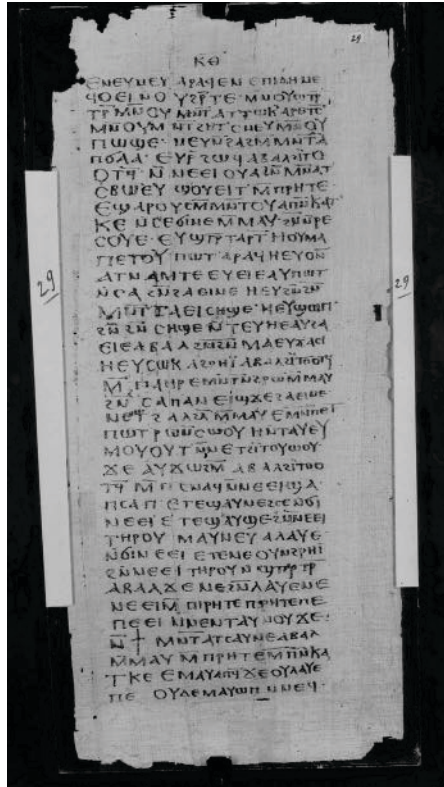 29
ⲕ̅ⲑ̅
ⲉⲛⲉⲩⲛⲉⲩ ⲁⲣⲁϥ ⲉⲛ ⲉⲡⲓⲇⲏ ⲛⲉ
ϥⲟⲉⲓ ⲛⲟⲩϩⲣ̅ⲧⲉ ⲙⲛ̅ⲛⲟⲩϣⲧⲣ̅
ⲧⲣ̅ ⲙⲛ̅ⲛⲟⲩ ⲙⲛ̅ⲧⲁⲧⲧⲱⲕ ⲁⲣⲉⲧⲥ̅
ⲙⲛ̅ⲟⲩⲙⲛ̅ⲧϩⲏⲧ ⲥⲛⲉⲩ ⲙⲛ̅ⲟⲩ
ⲡⲱϣⲉ· ⲛⲉⲩⲛ̅ϩⲁϩ ⲙ̅ⲙⲛ̅ⲧⲁ
ⲡⲗⲁ· ⲉⲩⲣ̅ ϩⲱϥ ⲁⲃⲁⲗ ϩⲓⲧⲟ
ⲟⲧϥ̅· ⲛ̅ⲛⲉⲉⲓ ⲟⲩⲁϩⲛ̅ ⲙⲛ̅ⲛⲁⲧ
ⲥⲃⲱ ⲉⲩϣⲟⲩⲉⲓⲧ ⲙ̅ⲡⲣⲏⲧⲉ
ⲉϣⲁⲣⲟⲩⲥⲙ̅ⲙⲛ̅ⲧⲟⲩ ⲁⲡⲛ̅ⲕⲁⲧ
ⲕⲉ ⲛ̅ⲥⲉϭⲓⲛⲉ ⲙ̅ⲙⲁⲩ ϩⲛ̅ϩⲛ̅ⲣⲉ
ⲥⲟⲩⲉ· ⲉⲩϣⲧⲣ̅ⲧⲁⲣⲧ̅ ⲏ ⲟⲩⲙⲁ
ⲡⲉⲧⲟⲩ ⲡⲱⲧ ⲁⲣⲁϥ ⲏ ⲉⲩⲟ ⲛ̅
ⲁⲧⲛ̅ⲁⲙⲧⲉ ⲉⲩⲉⲓ ⲉⲁⲩⲡⲱⲧ
ⲛ̅ⲥⲁ ϩⲛ̅ϩⲁⲉⲓⲛⲉ ⲏ ⲉⲩϩⲛ̅ϩⲛ̅
ⲙⲛ̅ⲧⲧⲁⲉⲓⲥⲏϣⲉ· ⲏ ⲉⲩϣⲱⲡ
ϩⲛ̅ϩⲛ̅ ⲥⲏϣⲉ ⲛ̅ⲧⲉⲩ ⲏ ⲉⲁⲩϩⲁ
ⲉⲓⲉ ⲁⲃⲁⲗ ϩⲛ̅ϩⲛ̅ ⲙⲁ ⲉⲩϫⲁⲥⲓ
ⲏ ⲉⲩⲥⲱⲕ ⲁϩⲣⲏⲓ̈ ⲁⲃⲁⲗ ϩⲓⲧⲟⲟⲧϥ̅
ⲙ̅ⲡⲁⲏⲣ ⲉⲙⲛ̅ ⲧⲛ̅ϩ ⲣⲱ ⲙ̅ⲙⲁⲩ
ϩⲛ̅ⲥⲁⲡ ⲁⲛ ⲉⲓϣϫⲉ ϩⲁⲉⲓⲛⲉ
ⲛⲉⲧϩⲁⲗϩⲗ̅ ⲙ̅ⲙⲁⲩ ⲉⲙⲛ̅ ⲡⲉⲧ
ⲡⲱⲧ ⲣⲱ ⲛ̅ⲥⲱⲟⲩ ⲏ ⲛ̅ⲧⲁⲩ ⲉⲩ
ⲙⲟⲩⲟⲩⲧ ⲛ̅ⲛⲉⲧϩⲓⲧⲟⲩⲱⲟⲩ
ϫⲉ ⲁⲩϫⲱϩⲙ̅ ⲁⲃⲁⲗ ϩⲓⲧⲟⲟ
ⲧϥ̅ ⲙ̅ⲡⲥⲛⲁϥ ⲛ̅ⲛⲉⲉⲓ ϣⲁ
ⲡⲥⲁⲡ ⲉⲧⲉϣⲁⲩⲛⲉϩⲥⲉ ⲛ̅ϭⲓ
ⲛⲉⲉⲓ ⲉⲧⲉϣⲁⲩϣⲉ ϩⲛ̅ⲛⲉⲉⲓ
ⲧⲏⲣⲟⲩ ⲙⲁⲩⲛⲉⲩ ⲁⲗⲁⲩⲉ
ⲛ̅ϭⲓ ⲛⲉⲉⲓ ⲉⲧⲉⲛⲉⲟⲩⲛϩⲣⲏⲓ̈
ϩⲛ̅ⲛⲉⲉⲓ ⲧⲏⲣⲟⲩ ⲛ̅ϣⲧⲣ̅ⲧⲣ̅
ⲁⲃⲁⲗ ϫⲉ ⲛⲉϩⲛ̅ⲗⲁⲩⲉ ⲛⲉ
ⲛⲉⲉⲓ ⲙ̅ⲡⲓⲣⲏⲧⲉ ⲡⲣⲏⲧⲉ ⲡⲉ
ⲡⲉⲉⲓ ⲛ̅ⲛⲉⲛⲧⲁⲩⲛⲟⲩϫⲉ·
ⲛ̅ϯⲙⲛ̅ⲧⲁⲧⲥⲁⲩⲛⲉ ⲁⲃⲁⲗ
ⲙ̅ⲙⲁⲩ ⲙ̅ⲡⲣⲏⲧⲉ ⲙ̅ⲡⲛ̅ⲕⲁ
ⲧⲕⲉ ⲉⲙⲁⲩⲁⲡϥ̅ ϫⲉ ⲟⲩⲗⲁⲩⲉ
ⲡⲉ ⲟⲩⲇⲉ ⲙⲁⲩⲱⲡ ⲛ̅ⲛⲉϥ
29
29